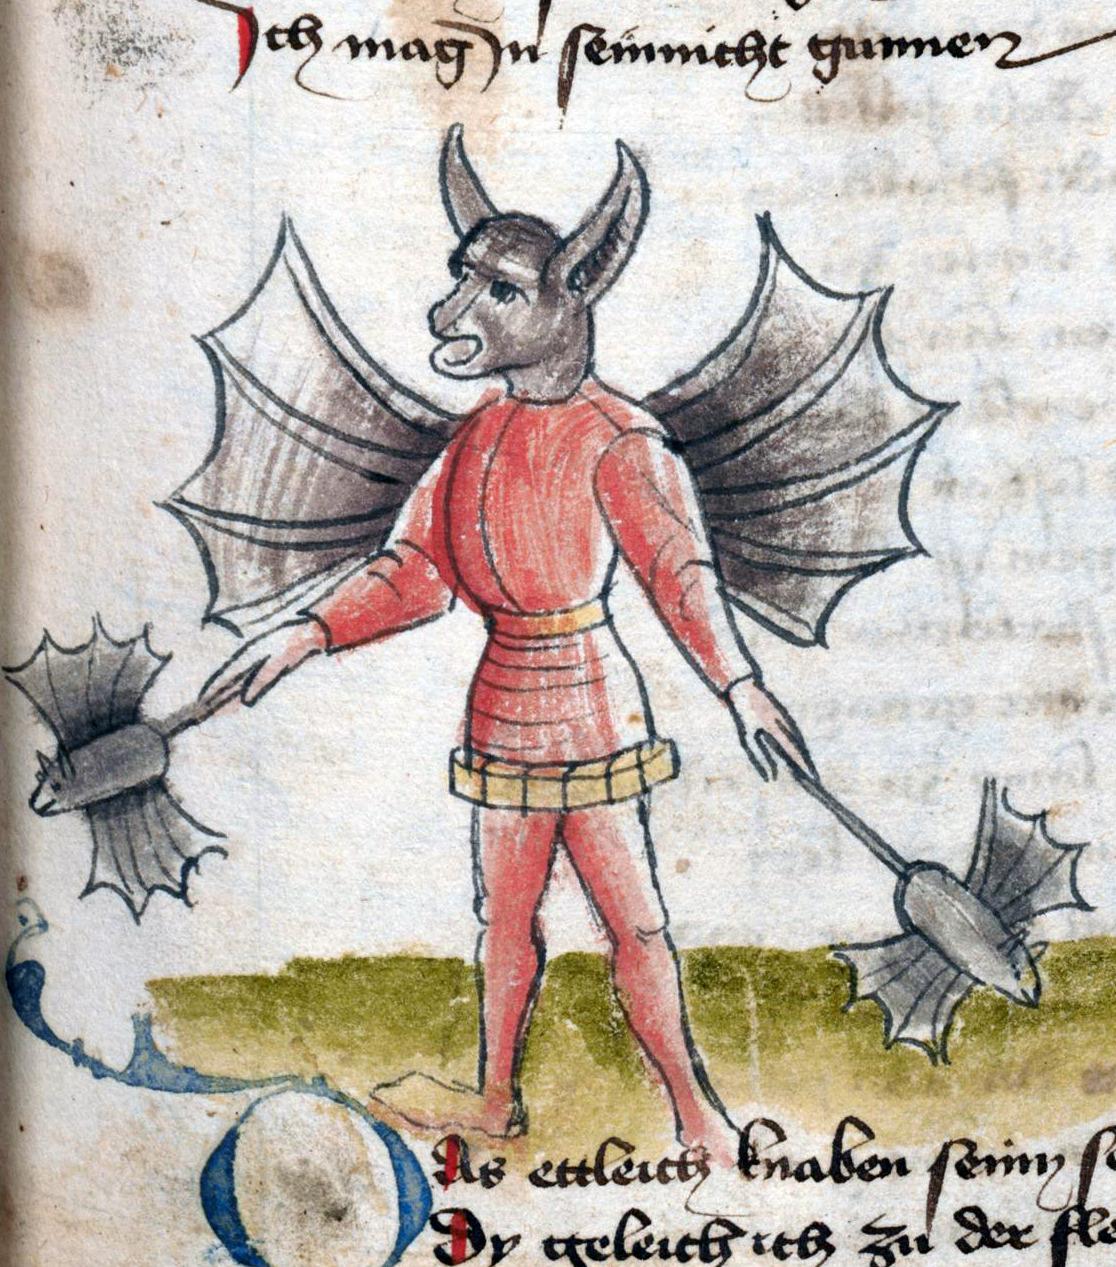 Ich mag In sein nicht gunnen
Das ettleich knaben seinn
Dy geleich ich zu der fle